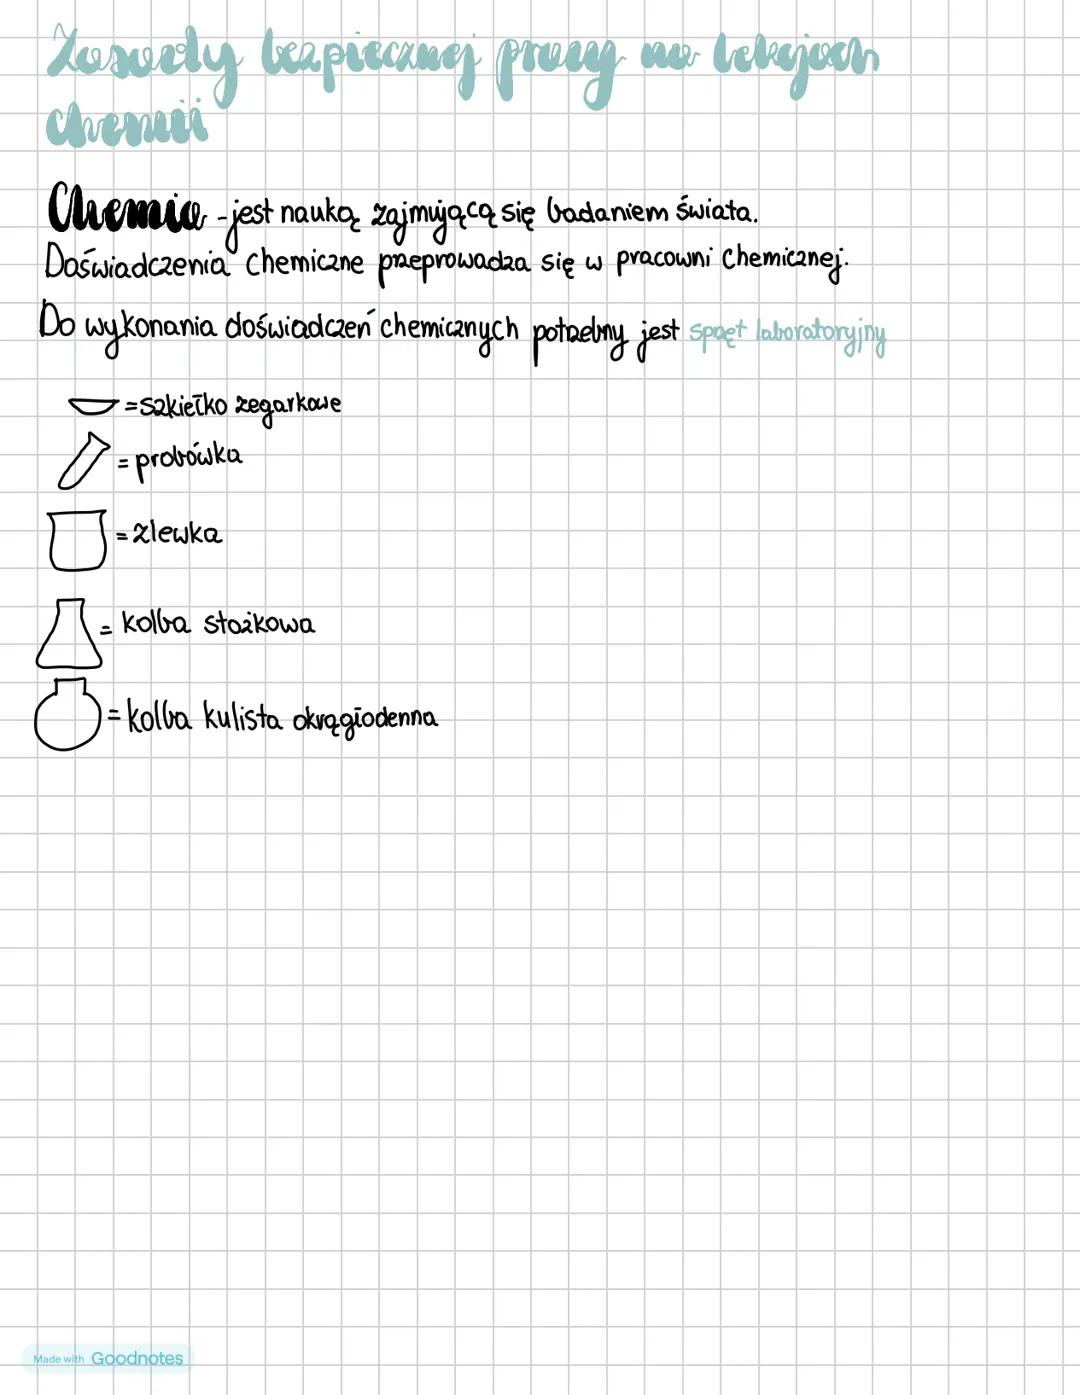 Zasady bezpiecznej pracy na lekcjach
chemii
Chemia - jest nauką zajmującą się badaniem świata.
Doświadczenia chemiczne przeprowadza się w pracowni chemicznej.
Do wykonania doświadczeń chemicznych potrzebny jest sprzęt laboratoryjny
= szkiełko zegarkowe
= probówka
= zlewka
= kolba stożkowa
= kolba kulista okrągłodenna
Made with Goodnotes